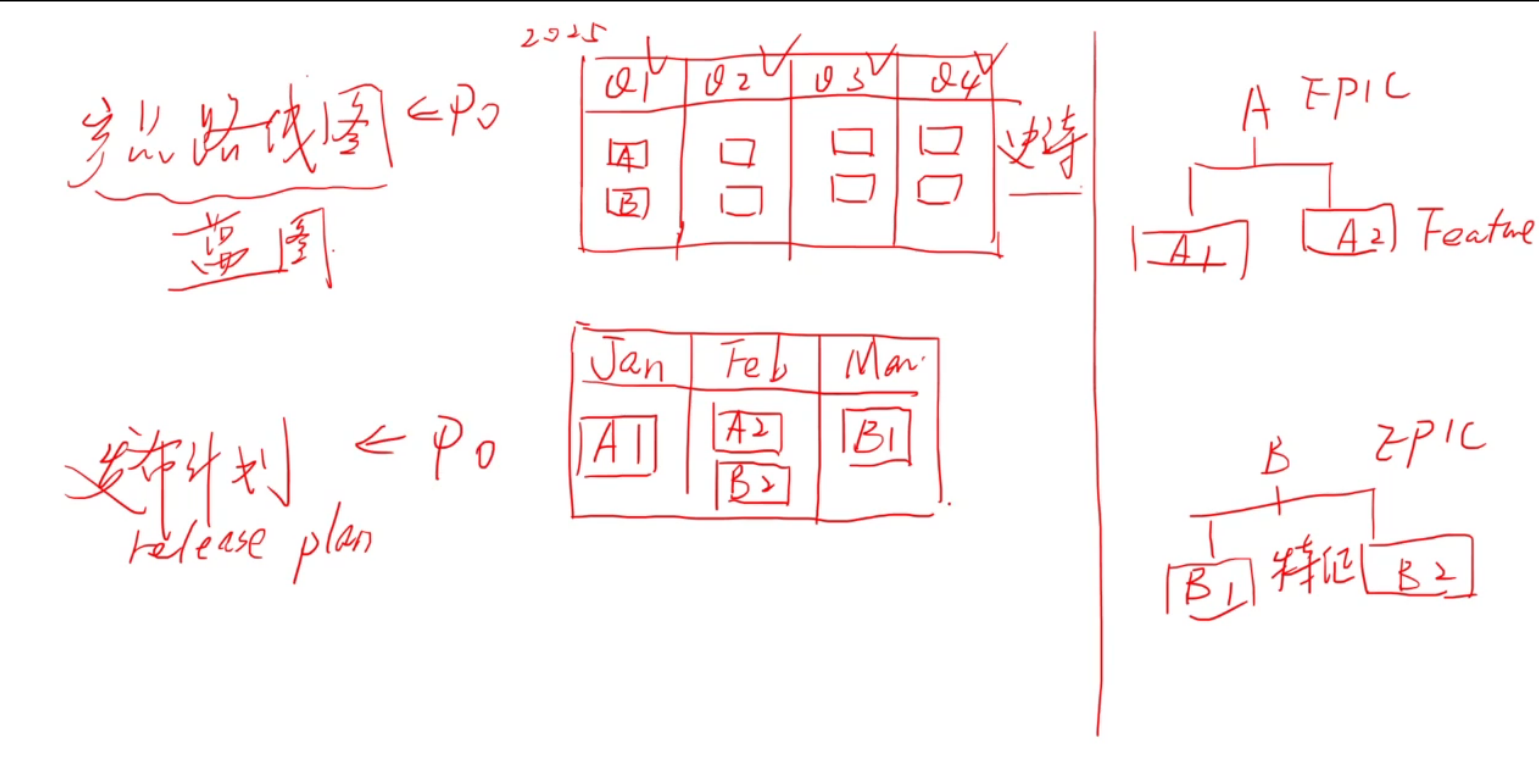 2025
产品路线图 ← PO
蓝图
Q1 Q2 Q3 Q4
A
B
史诗
发布计划 ← PO
release plan
Jan Feb Mar.
A1 A2 B1
B2
A EPIC
A1 A2 Feature
B EPIC
B1 特征 B2